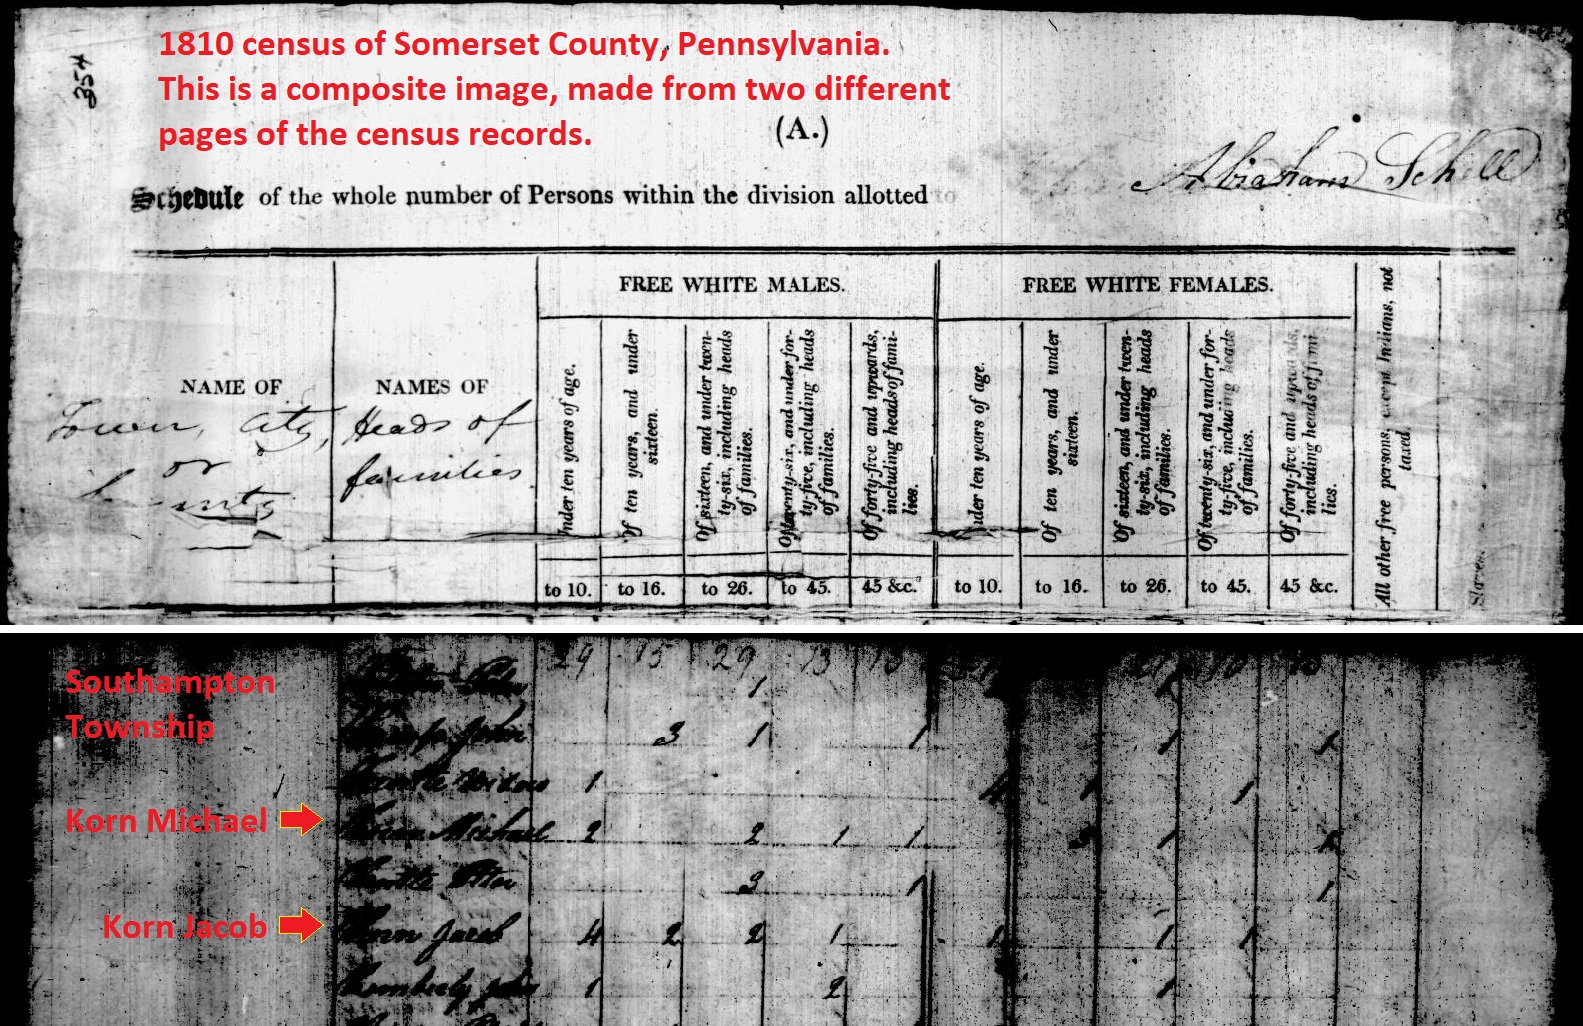 354
1810 census of Somerset County, Pennsylvania.
This is a composite image, made from two different
pages of the census records.
(A.)
Abraham Schell
Schedule of the whole number of Persons within the division allotted to
FREE WHITE MALES.
FREE WHITE FEMALES.
NAME OF
Town, City,
or
NAMES OF
Heads of
families
Under ten years of age.
Of ten years, and under
sixteen.
Of sixteen, and under twen-
ty-six, including heads
of families.
Of twenty-six, and under for-
ty-five, including heads
of families.
Of forty-five and upwards,
including heads of fami-
lies.
Under ten years of age.
Of ten years, and under
sixteen.
Of sixteen, and under twen-
ty-six, including heads
of families.
Of twenty-six, and under for-
ty-five, including heads
of families.
Of forty-five and upwards,
including heads of fami-
lies.
All other free persons, except Indians, not
taxed.
Slaves.
to 10. to 16. to 26. to 45. 45 &c. to 10. to 16. to 26. to 45. 45 &c.
Southampton
Township
29 15 29 13
1
John 3 1 1 1 1
1 1 1
Korn Michael
Michael 2 2 1 1 1
3 1 1
Korn Jacob
Korn Jacob 4 2 2 1 1 1 1
John 1 2 1